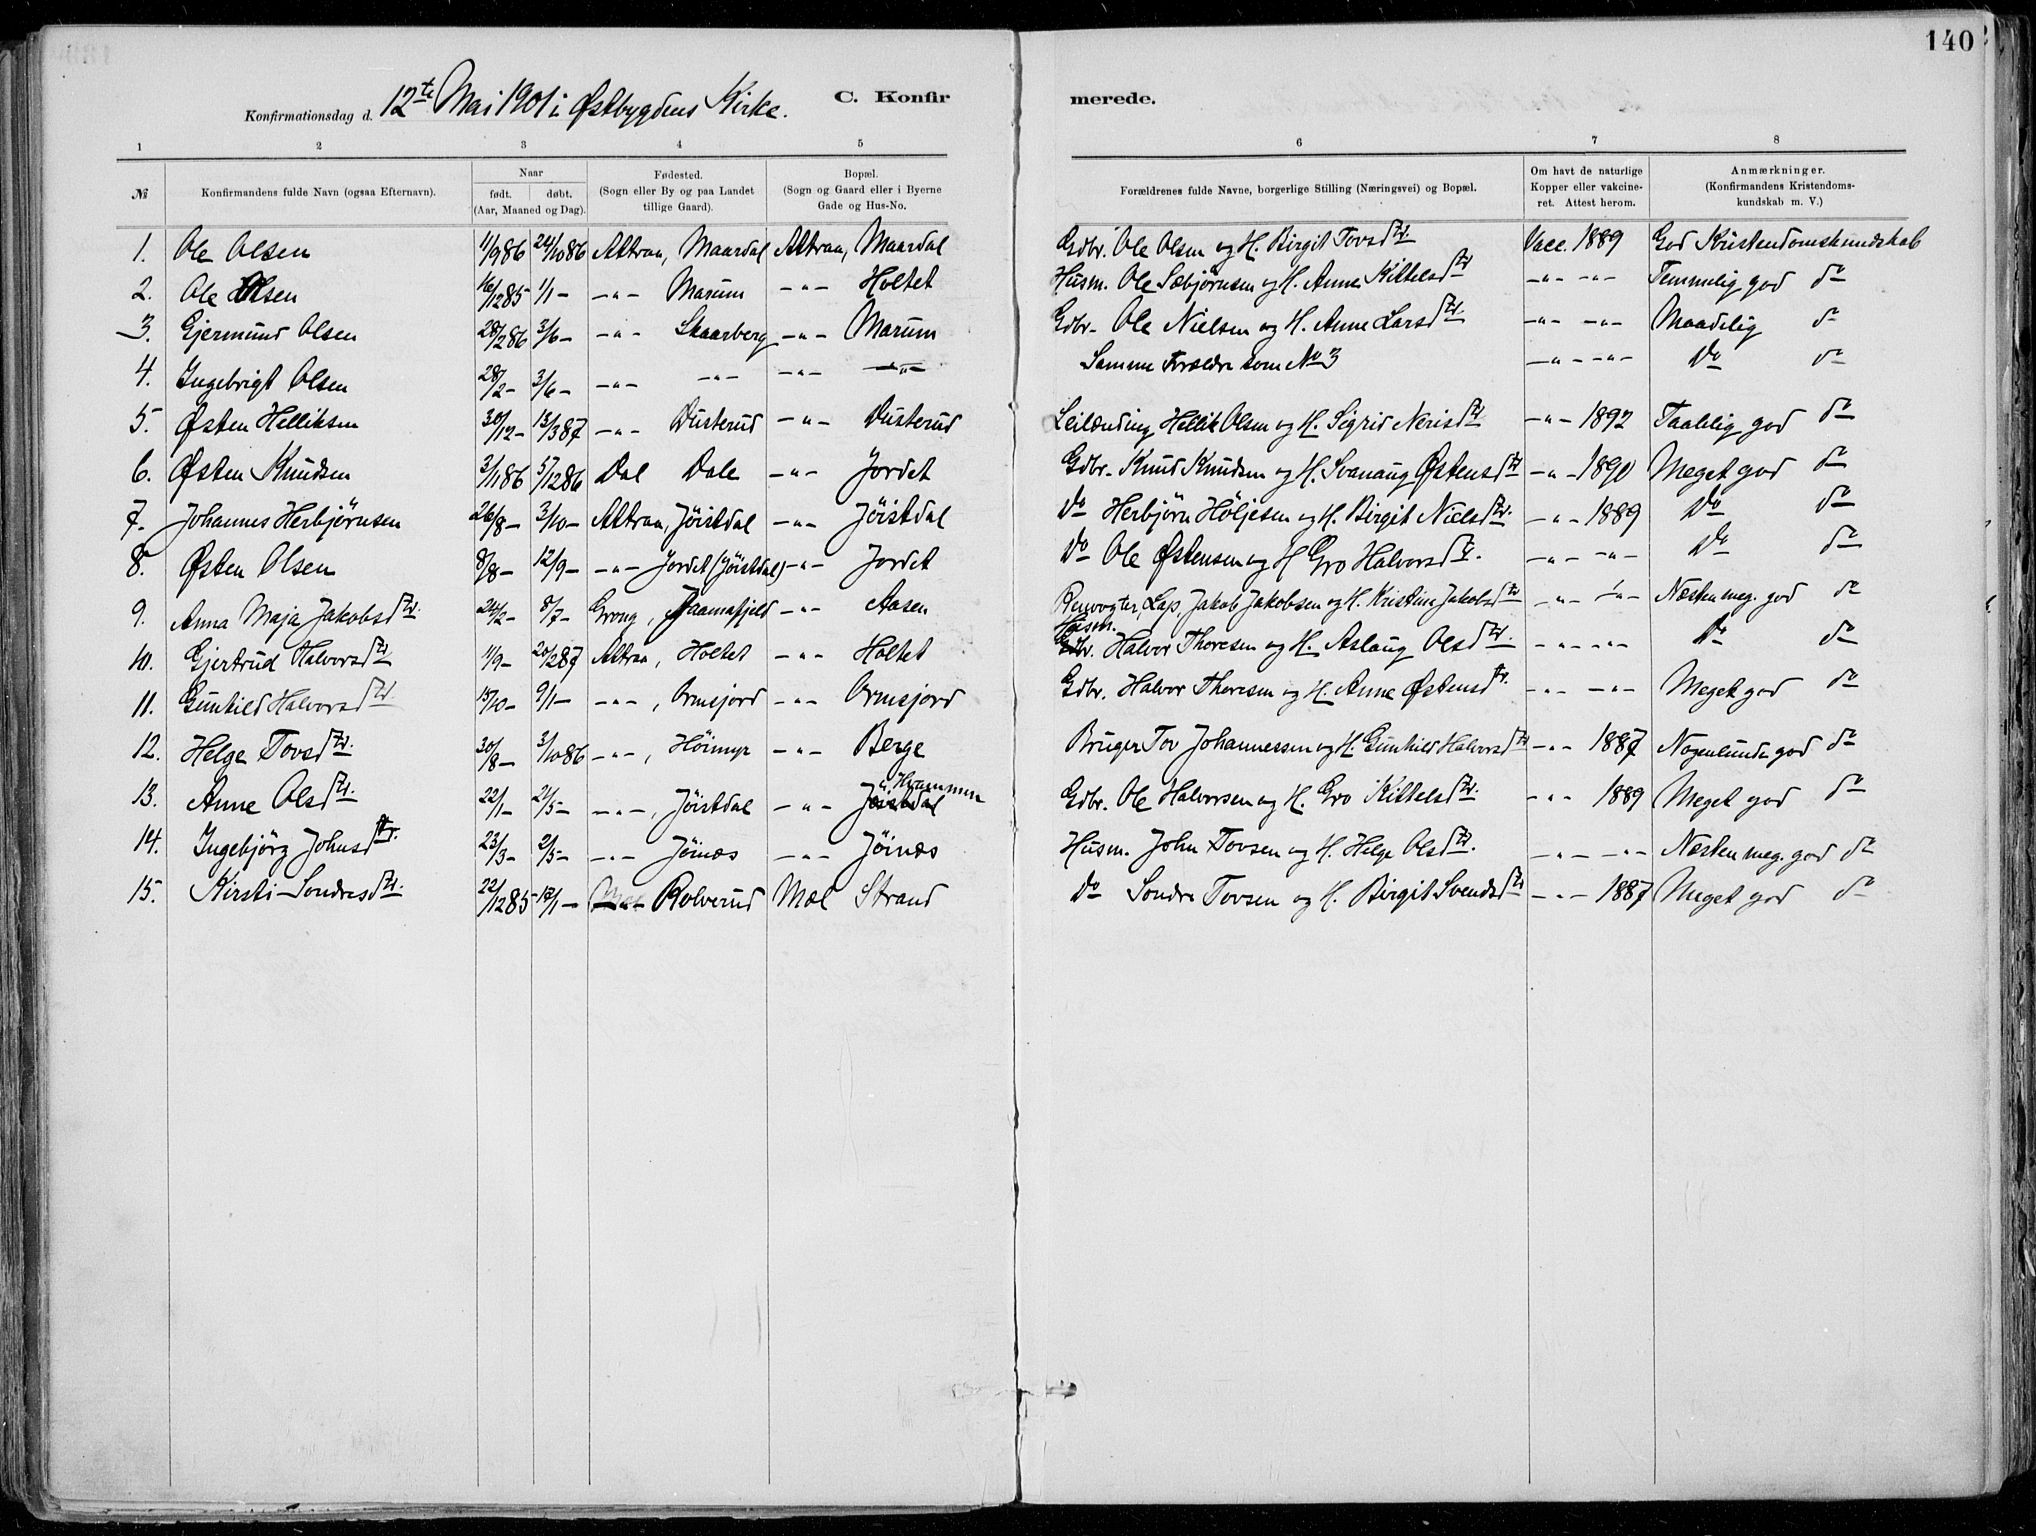 140
Konfirmationsdag d. 12te Mai 1901 i Østbygdens Kirke.
C. Konfirmerede.
1 2 3 4 5 6 7 8
№ Konfirmandens fulde Navn (ogsaa Efternavn). Naar født. døbt. (Aar, Maaned og Dag). Fødested. (Sogn eller By og paa Landet tillige Gaard). Bopæl. (Sogn og Gaard eller i Byerne Gade og Hus-No. Forældrenes fulde Navne, borgerlige Stilling (Næringsvei) og Bopæl. Om havt de naturlige Kopper eller vakcineret. Attest herom. Anmærkninger. (Konfirmandens Kristendomskundskab m. V.)
1. Ole Olsen 11/9 86 24/10 86 Attraa, Maardal Attraa, Maardal Gdbr. Ole Olsen og H. Birgit Tovsdtr. Vacc. 1889 God Kristendomskundskab
2. Ole Olsen 16/12 85 1/1 - -"- Marum -"- Holtet Husm. Ole Sæbjørnsen og H. Anne Kittelsdtr -"- -"- Temmelig god do
3. Gjermund Olsen 28/2 86 3/6 - -"- Skaarberg -"- Marum Gdbr. Ole Nielsen og H. Anne Larsdtr. -"- -"- Maadelig do
4. Ingebrigt Olsen 28/2 - 3/6 - -"- -"- -"- -"- Samme Forældre som No 3 -"- -"- Do do
5. Østen Helliksen 30/12 - 13/3 87 -"- Dusterud -"- Dusterud Leilænding Hellik Olsen og H. Sigrid Nerisdtr -"- 1892 Taalelig god do
6. Østen Knudsen 3/11 86 5/12 86 Dal Dale -"- Jordet Gdbr. Knud Knudsen og H. Svanaug Østensdtr -"- 1890 Meget god do
7. Johannes Herbjørnsen 26/8 - 3/10 - Attraa, Jøistdal -"- Jøistdal Do Herbjørn Høljesen og H. Birgit Nielsdtr. -"- 1889 Do do
8. Østen Olsen 8/8 - 12/9 - -"- Jordet (Jøistdal) -"- Jordet Do Ole Østensen og H Gro Halvorsdtr. -"- -"- Do do
9. Anna Maja Jakobsdtr. 24/2 - 8/7 - Grong, Jaamafjeld -"- Aasen Renvogter, Lap, Jakob Jakobsen og H. Kristine Jakobsdtr -"- -"- Næsten meg. god do
10. Gjertrud Halvorsdtr 11/9 - 20/2 87 Attraa, Holtet -"- Holtet Husm. Halvor Thoresen og H. Aslaug Olsdtr. -"- -"- Do do
11. Gunhild Halvorsdtr. 15/10 - 9/1 - -"-, Ormsjord -"- Ormsjord Gdbr. Halvor Thoresen og H. Anne Østensdtr. -"- -"- Meget god do
12. Helge Tovsdtr. 30/8 - 3/10 86 -"-, Høimyr -"- Berge Bruger Tov Johannessen og H. Gunhild Halvorsdtr -"- 1887 Nogenlunde god do
13. Anne Olsdtr. 22/1 - 2/5 - -"-, Jøistdal -"- Jøistdal Hvammen Gdbr. Ole Halvorsen og H. Gro Kittelsdtr. -"- 1889 Meget god do
14. Ingebjørg Johnsdtr. 23/3 - 2/5 - -"- Jøinæs -"- Jøinæs Husm. John Tovsen og H. Helge Olsdtr. -"- -"- Næsten meg. god do
15. Kirsti Sondresdtr. 22/12 85 /1 - Rolverud Mæl Strand Do Sondre Tovsen og H. Birgit Svendsdtr -"- 1887 Meget god do